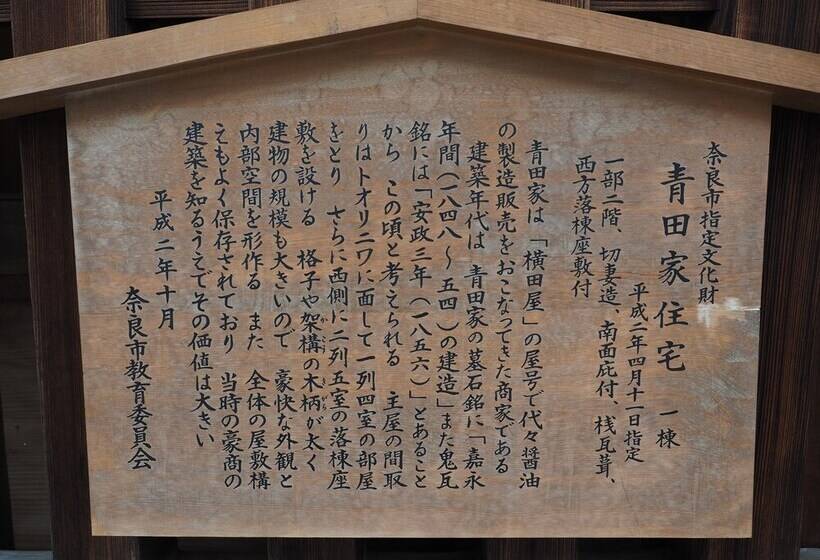 奈良市指定文化財
青田家住宅 一棟
平成二年四月十一日指定
一部二階、切妻造、南面庇付、桟瓦葺、
西方落棟座敷付
青田家は「横田屋」の屋号で代々醤油
の製造販売をおこなってきた商家である
建築年代は 青田家の墓石銘に「嘉永
年間(一八四八〜五四)の建造」また鬼瓦
銘には「安政三年(一八五六)」とあること
から この頃と考えられる 主屋の間取
りはトオリニワに面して一列四室の部屋
をとり さらに西側に二列五室の落棟座
敷を設ける 格子や架構の木柄が太く
かこう きがら
建物の規模も大きいので 豪快な外観と
内部空間を形作る また 全体の屋敷構
えもよく保存されており 当時の豪商の
建築を知るうえでその価値は大きい
平成二年十月
奈良市教育委員会